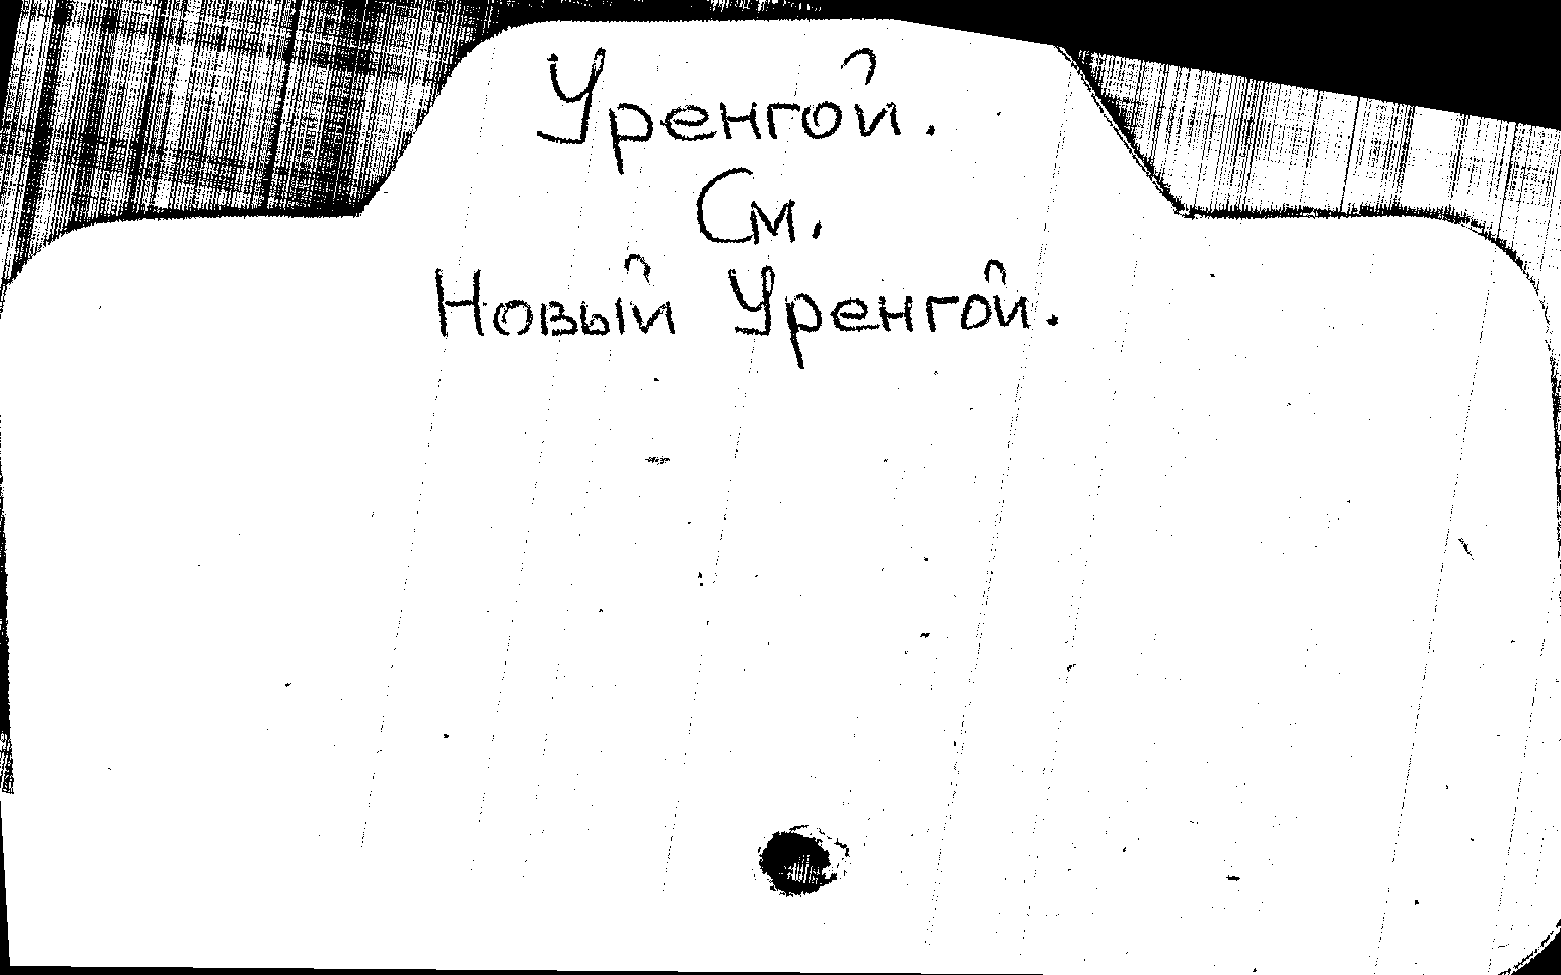 Уренгой.
См.
Новый Уренгой.